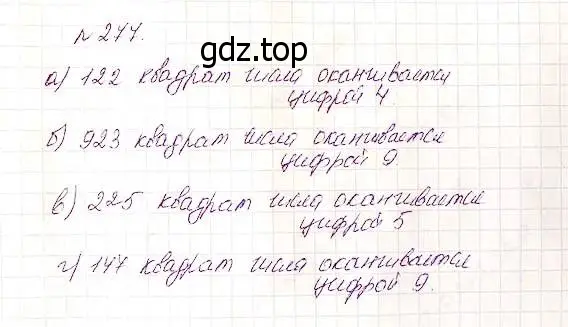 № 277.
gdz.top
а) 122 квадрат числа оканчивается
цифрой 4.
б) 923 квадрат числа оканчивается
цифрой 9.
в) 225 квадрат числа оканчивается
цифрой 5
г) 147 квадрат числа оканчивается
цифрой 9.